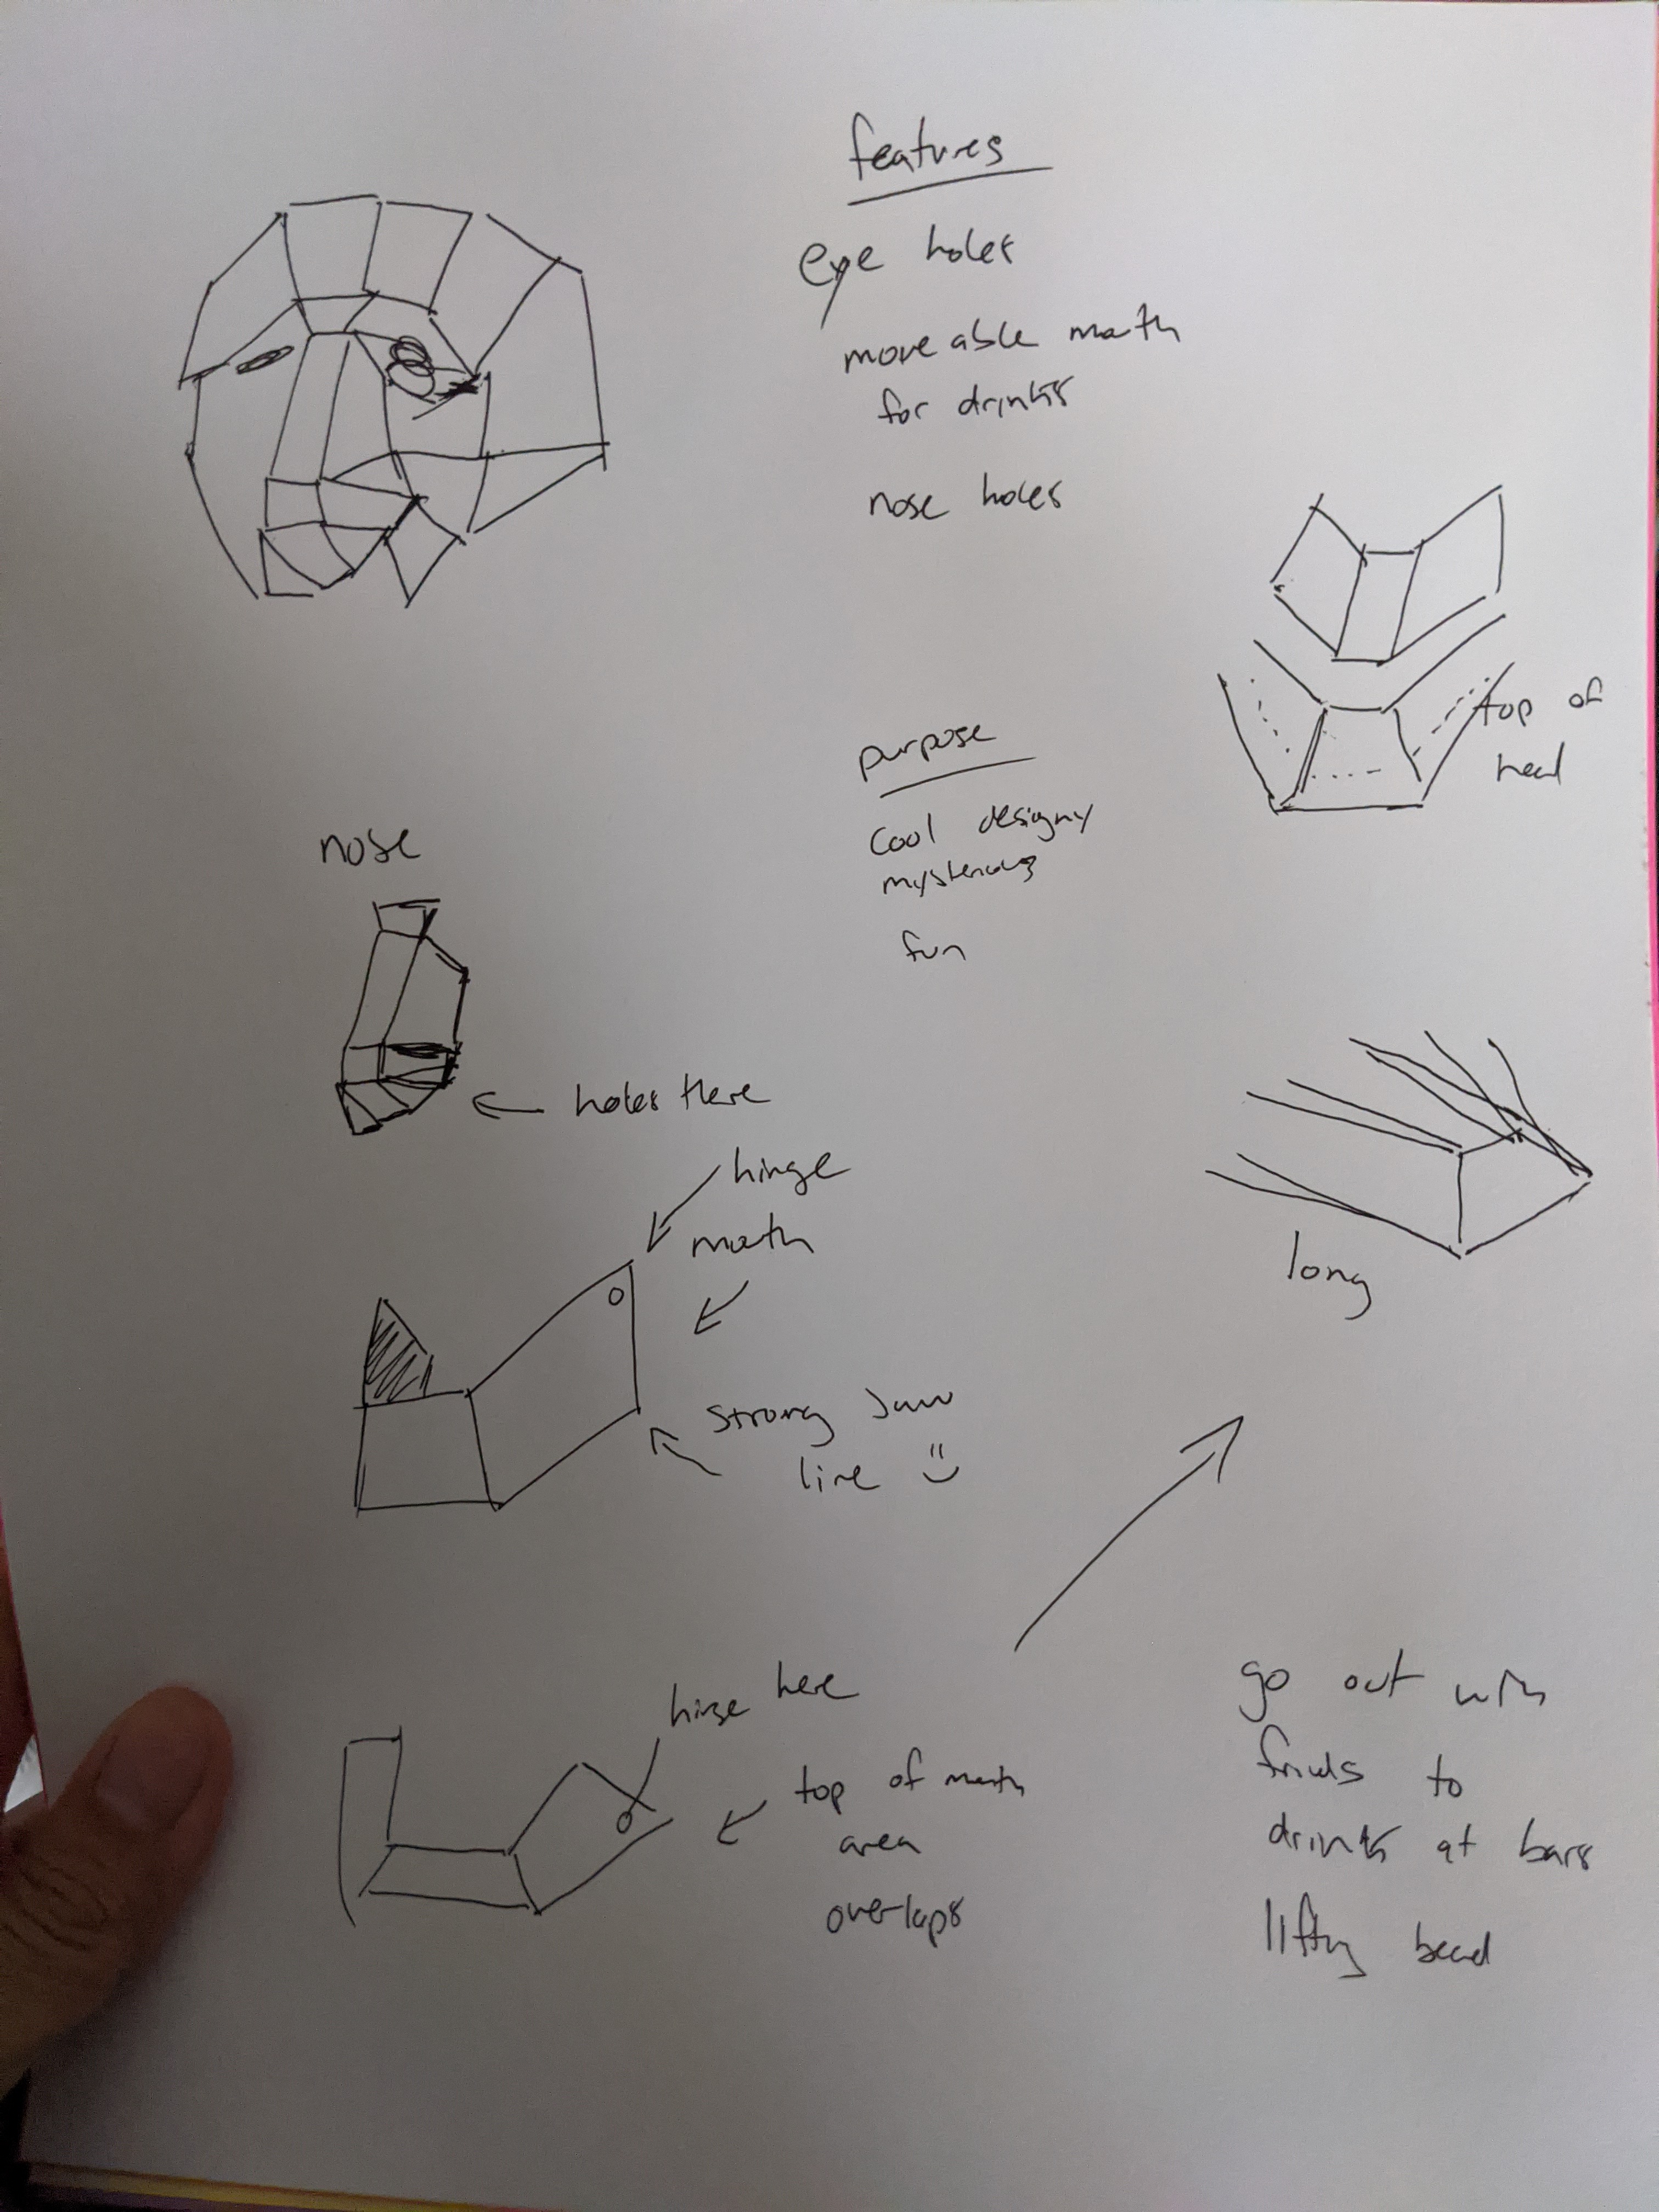 features
eye holes
moveable mouth
for drinks
nose holes
top of
head
purpose
Cool designy
mysterious
fun
nose
holes there
hinge
mouth
strong jaw
line
long
hinge here
top of mouth
area
overlaps
go out with
friends to
drinks at bars